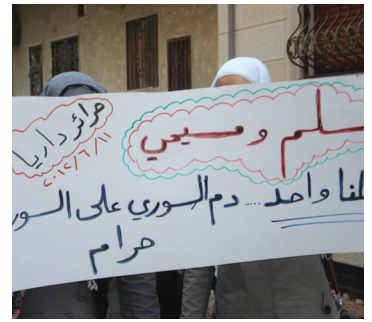 حرائر داريا
٢٠١٢/٦/١١
سلم و مسيحي
لنا واحد .... دم السوري على السور
حرام